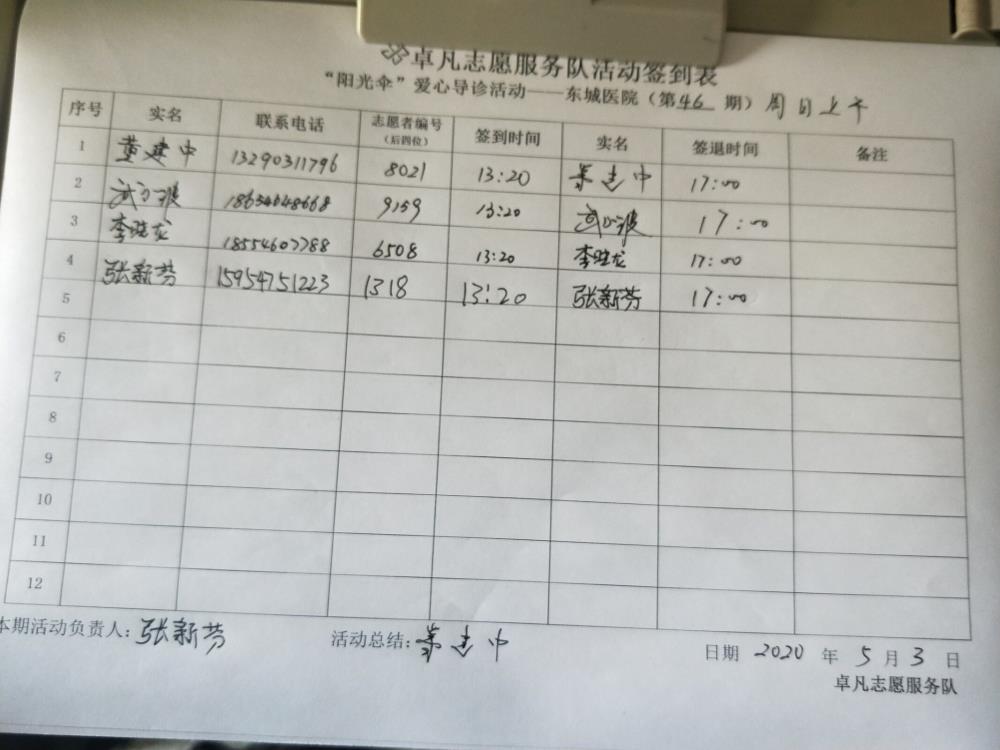 卓凡志愿服务队活动签到表
“阳光伞”爱心导诊活动——东城医院（第46期）周日上午
序号 实名 联系电话 志愿者编号（后四位） 签到时间 实名 签退时间 备注
1 建中 13290311796 8021 13:20 建中 17:00
2 武 波 18654648668 9159 13:20 武 波 17:00
3 李晓龙 18554607788 6508 13:20 李晓龙 17:00
4 张新芬 15954751223 1318 13:20 张新芬 17:00
5
6
7
8
9
10
11
12
本期活动负责人：张新芬 活动总结： 建中 日期 2020 年 5 月 3 日
卓凡志愿服务队